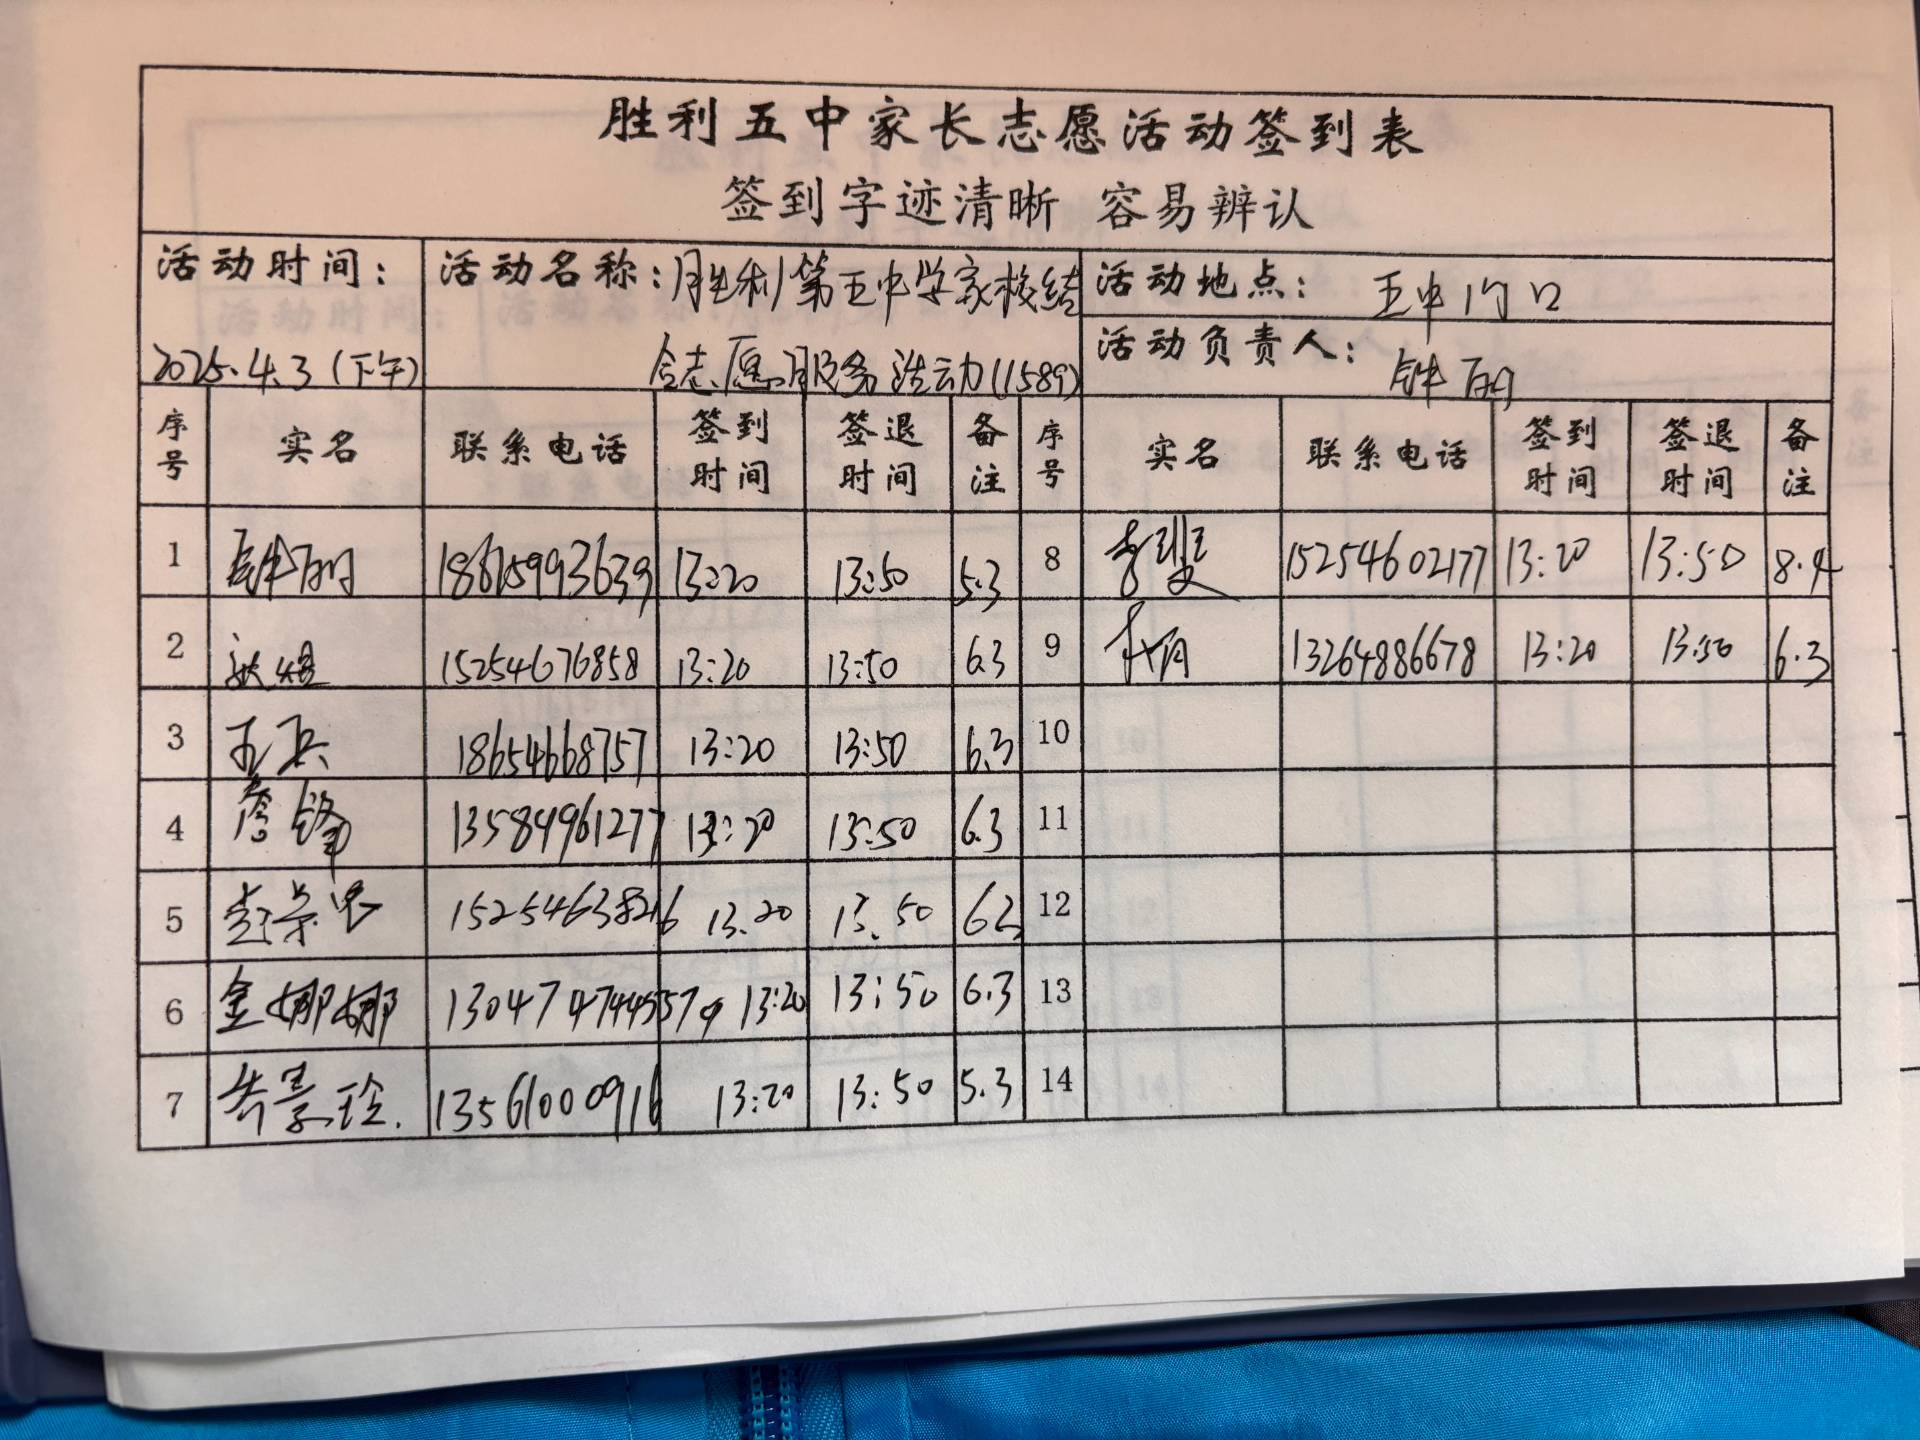 胜利五中家长志愿活动签到表
签到字迹清晰 容易辨认
活动时间: 2025.4.3(下午)
活动名称:胜利第五中学家校结
合志愿服务活动(11589)
活动地点: 五中门口
活动负责人: 钟丽
序号 实名 联系电话 签到时间 签退时间 备注 序号 实名 联系电话 签到时间 签退时间 备注
1 钟丽 18615993639 13:20 13:50 5.3 8 李斐 15254602177 13:20 13:50 8.4
2 15254676858 13:20 13:50 6.3 9 13264886678 13:20 13:50 6.3
3 王兵 18654668757 13:20 13:50 6.3 10
4 詹锋 13584961277 13:20 13:50 6.3 11
5 13.20 13.50 6.3 12
6 金娜娜 13:20 13:50 6.3 13
7 景玲. 13561000916 13:20 13:50 5.3 14